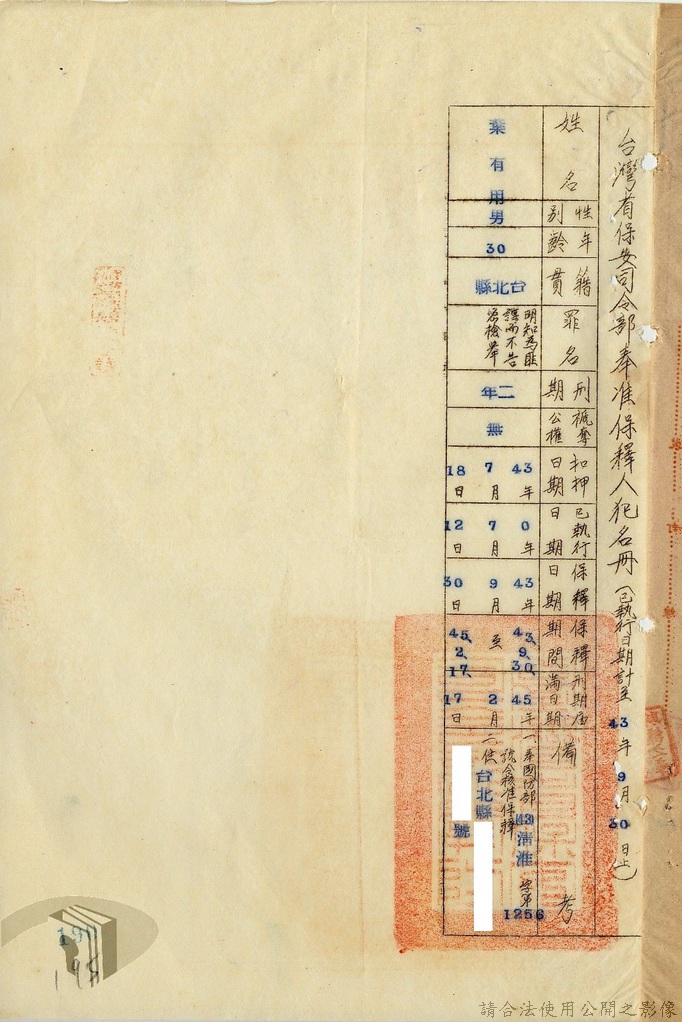 台灣省保安司令部奉准保釋人犯名冊(已執行日期計至43年9月30日止)
姓名
葉有用
性別
男
年齡
30
籍貫
台北縣
罪名
明知為匪
諜而不告
密檢舉
刑期
二年
褫奪公權
無
扣押日期
43年7月18日
已執行日期
0年7月12日
保釋日期
43年9月30日
保釋期間
43、9、30、至45、2、17、
刑期屆滿日期
45年2月17日
備考
一、奉國防部(43)清淮字第1256
號令核准保釋
二、住台北縣
號
190
198
請合法使用公開之影像